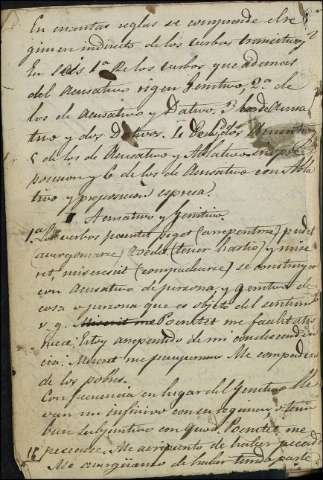 En cuantas reglas se comprende el re
gimen indirecto de los verbos transitivos
En seis 1ª de los verbos que ademas
del Acusativo rigen Genitivo, 2ª de
los de Acusativo y Dativo, 3ª
tivo y dos Dativos.
5 de los de Acusativo y Ablativo
posicion y 6 de los de Acusativo con Abla
tivo y preposicion espresa
Acusativo y Genitivo
1ª verbos poenitet piget (arrepentirse) pudet
avergonzarse) taedet (tener hastio) y mise
ret, miserescit (compadecerse) se construyen
con Acusativo de persona, y genitivo de
cosa o persona que es objeto del sentimto
v. g. Poenitet me facilitatis
Estoy arrepentido de mi condescenden
cia: Miseret me pauperum Me compadezco
de los pobres.
Con frecuencia en lugar del Genitivo lle
van un infinitivo con su regimen o tam
bien subjuntivo con quod. Poenitet me
peccasse. Me arrepiento de haber pecado
Me averguenzo de haber tenido parte